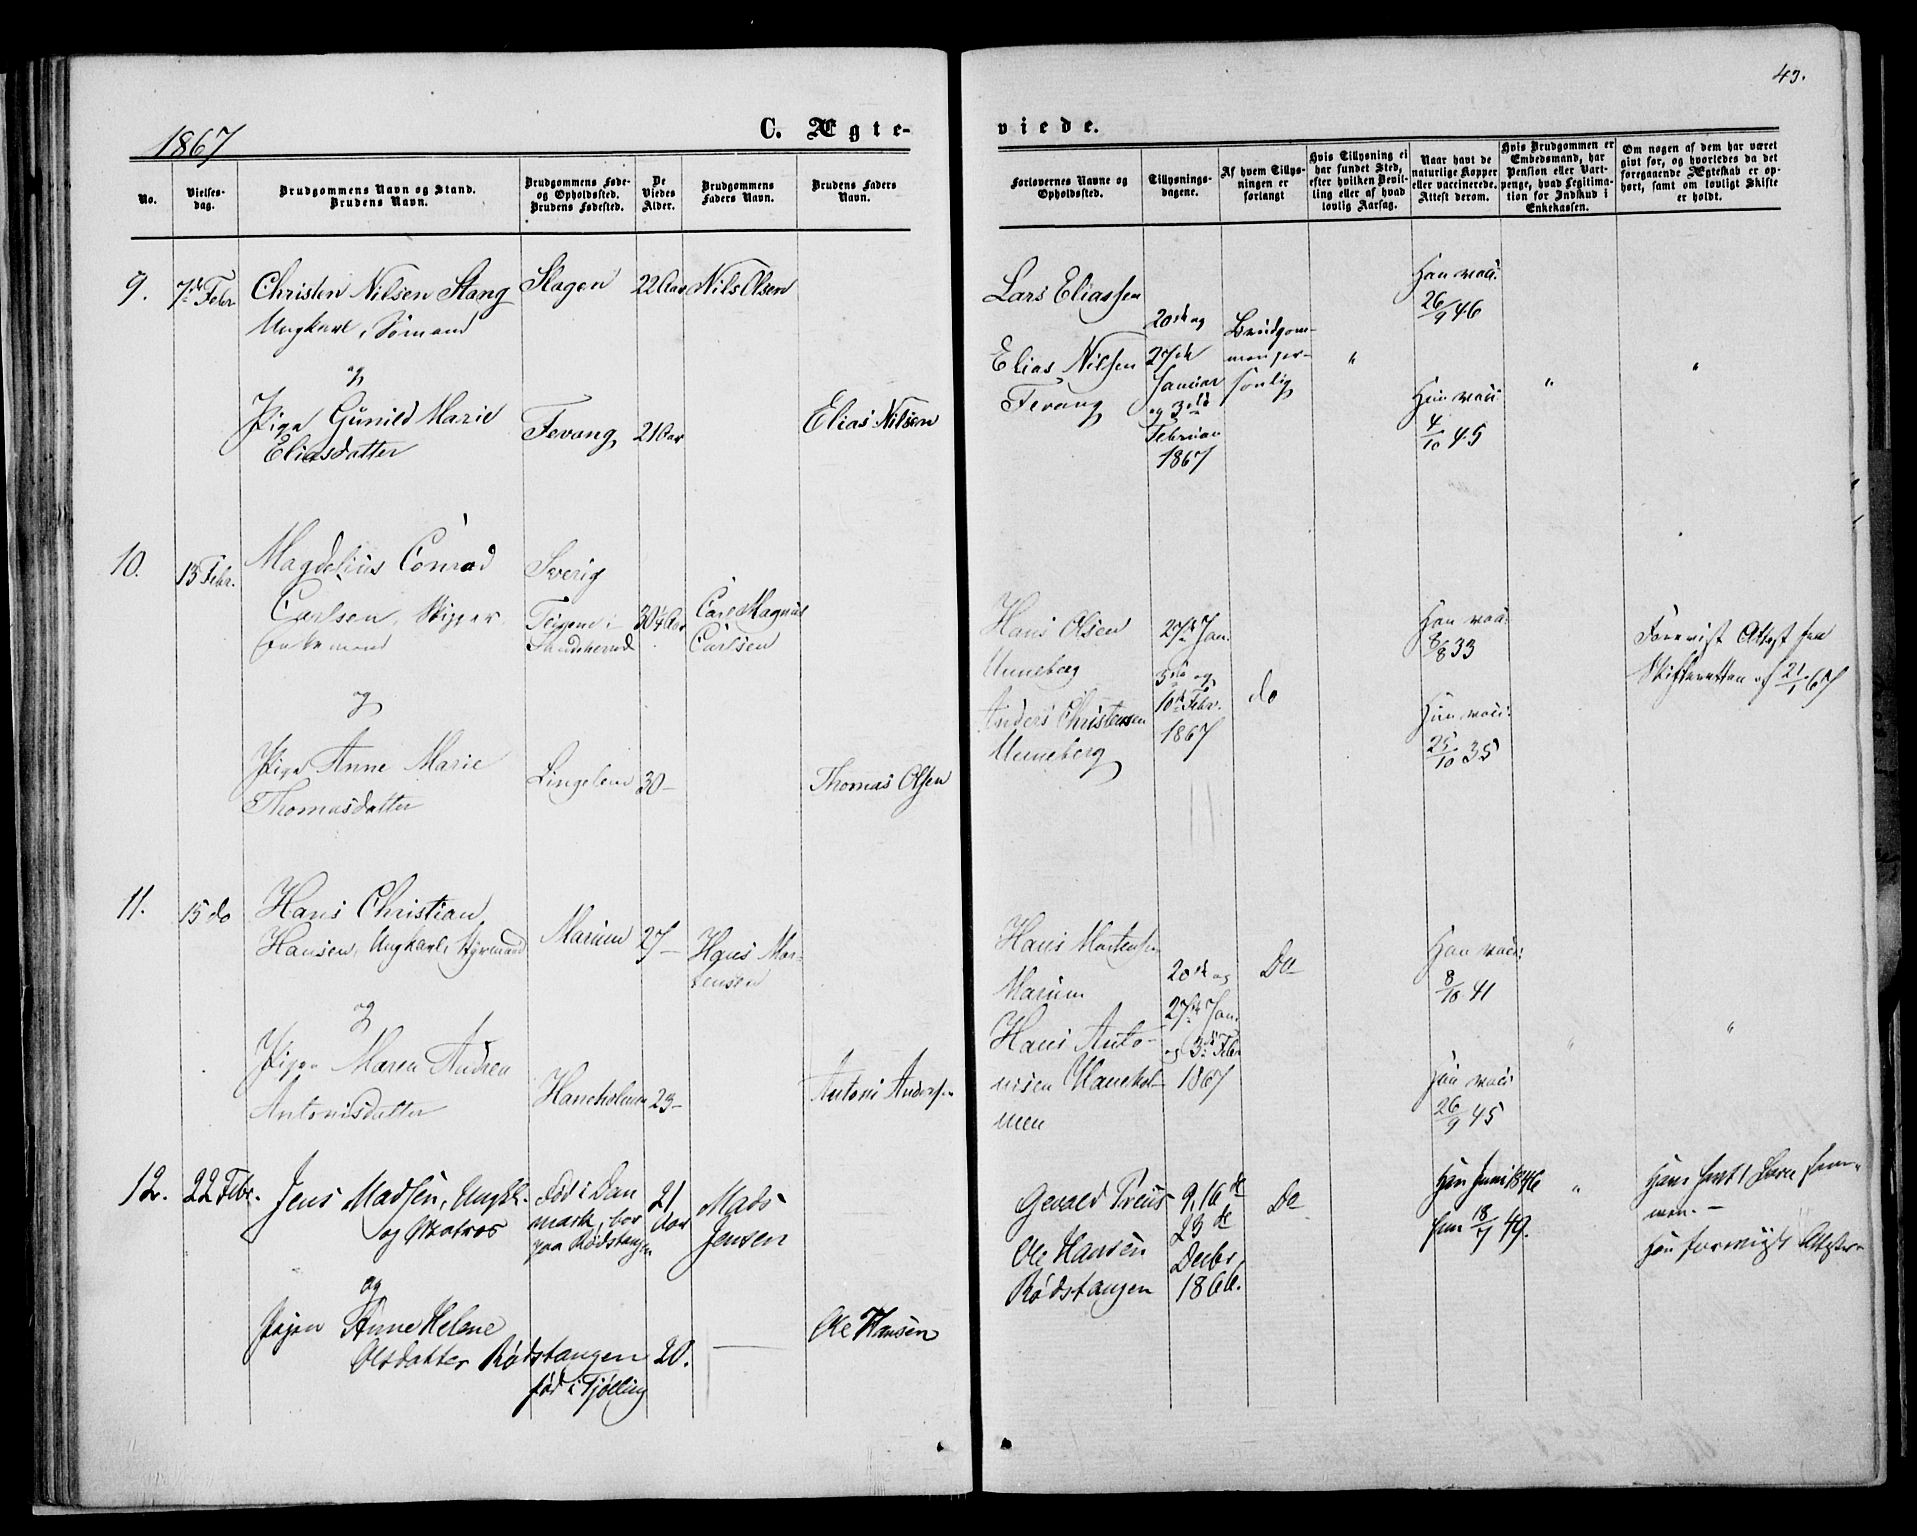 43.
1867
C. Ægte-
viede.
No.
Vielses-
dag.
Brudgommens Navn og Stand.
Brudens Navn.
Brudgommens Føde-
og Opholdssted.
Brudens Fødested.
De
Viedes
Alder.
Brudgommens
Faders Navn.
Brudens Faders
Navn.
Forlovernes Navne og
Opholdssted.
Tillysnings-
dagene.
Af hvem Tillys-
ningen er
forlangt
Hvis Tillysning ei
har fundet Sted,
efter hvilken Bevil-
ling eller af hvad
lovlig Aarsag.
Naar havt de
naturlige Kopper
eller vaccinerede.
Attest derom.
Hvis Brudgommen er
Embedsmand, har
Pension eller Vart-
penge, hvad Legitima-
tion for Indskud i
Enkekassen.
Om nogen af dem har været
givt før, og hvorledes da det
foregaaende Ægteskab er op-
hørt, samt om lovligt Skifte
er holdt.
9.
7de Febr
Christen Nilsen Stang
Ungkarl, Sømand
og
Pige Gunild Marie
Eliasdatter
Skagen
Fevang
22 Aar
21 Aar
Nils Olsen
Elias Nilsen
Lars Eliassen
Elias Nilsen
Fevang
20de og
27de
Januar
og 3die
Februar
1867
Brudgom-
men per-
sonlig
"
Han vacc.
26/9 46
Hun vacc.
4/10 45
"
"
10.
13 Febr.
Magdelius Conrad
Carlsen, Skipper
Enkemand
og
Pige Anne Marie
Thomasdatter
Sverig
i
Sandeherred
Lingelem
30¼ Aar
30 —
Carl Magnus
Carlsen
Thomas Olsen
Hans Olsen
Unneberg
Anders Christensen
Unneberg
27de Jan.
3die og
10de Febr.
1867
do
Han vacc.
8/8 33
Hun vacc.
25/10 35
Forevist Attest fra
Skifteretten af 21/1 67
11.
15 do
Hans Christian
Hansen, Ungkarl, Styrmand
og
Pige Maren Andrea
Antonisdatter
Marum
Haneholmen
27 —
23 —
Hans Mor-
tensen
Antoni Andersen
Hans Mortensen
Marum
Hans Anto-
nisen Hanehol-
men
20de og
27de Jan.
og 3die Febr
1867
Do
Han vacc.
8/10 41
Hun vacc.
26/9 45
"
"
12.
22 Febr.
Jens Madsen, Ungkl.
og Matros
og
Pigen Anne Helene
Olsdatter Rødstangen
Fød i Dan
mark, bor
paa Rødstangen
fød i Tjølling
21
Aar
20.
Mads
Jensen
Ole Hansen
Gevald Preus
Ole Hansen
Rødstangen
9, 16 de
23 de
Decbr
1866.
Do
Han Juni 1846
Hun 18/7 49.
"